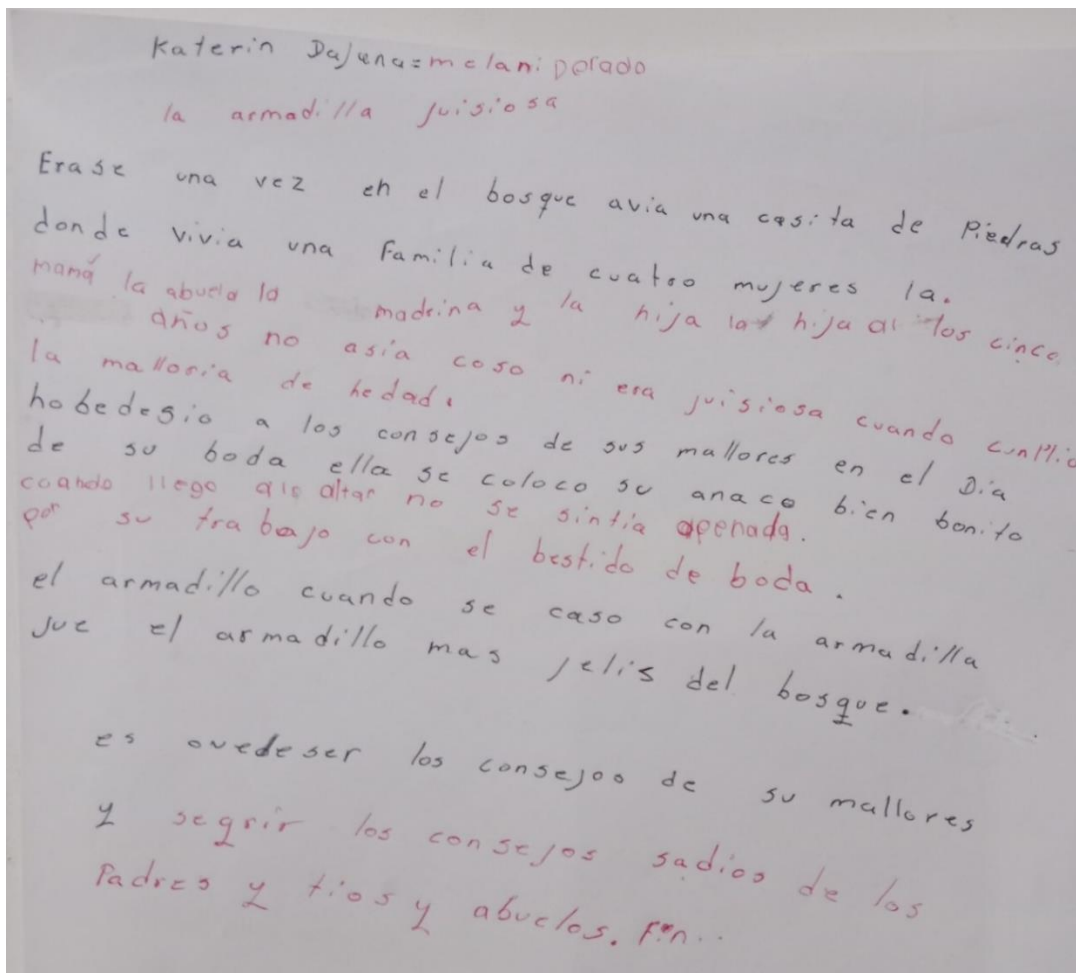 Katerin Dajuna = melani dorado
la armadilla juisiosa
Erase una vez en el bosque avia una casita de Piedras
donde vivia una Familia de cuatro mujeres la.
mamá la abuela la madrina y la hija la hija a los cinco
años no asia coso ni era juisiosa cuando cunplio
la malloria de hedad.
hobedesio a los consejos de sus mallores en el Dia
de su boda ella se coloco su anaco bien bonito
cuando llego als altar no se sintia apenada.
por su trabajo con el bestido de boda.
el armadillo cuando se caso con la armadilla
jue el armadillo mas jelis del bosque.
es ovedeser los consejos de su mallores
y segrir los consejos sadios de los
Padres y tios y abuelos. Fin..